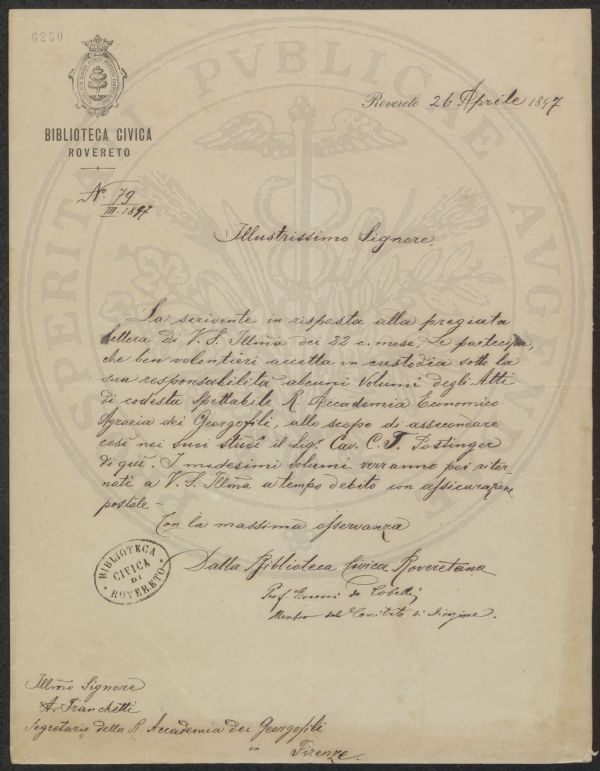 6250
BIBLIOTECA CIVICA
ROVERETO
Rovereto 26 Aprile 1897
N.° 79
III. 1897
Illustrissimo Signore,
La scrivente in risposta alla pregiata
lettera di V. S. Illma dei 22 c. mese, Le partecipa,
che ben volontieri accetta in custodia sotto la
sua responsabilità alcuni Volumi degli Atti
di codesta Spettabile R. Accademia Economico
Agraria dei Georgofili, allo scopo di assecondare
così nei suoi studi il Sig.r Cav. C. T. Postinger
di quì. I medesimi volumi verranno poi ritor-
nati a V. S. Illma a tempo debito con assicurazione
postale -
Con la massima osservanza
Dalla Biblioteca Civica Roveretana
Prof. de Cobelli
Membro del Comitato di Direzione.
BIBLIOTECA
CIVICA
DI
ROVERETO
Illmo Signore
A. Franchetti
Segretario della R. Accademia dei Georgofili
in
Firenze.
PROSPERITATI PVBLICAE AVGENDAE